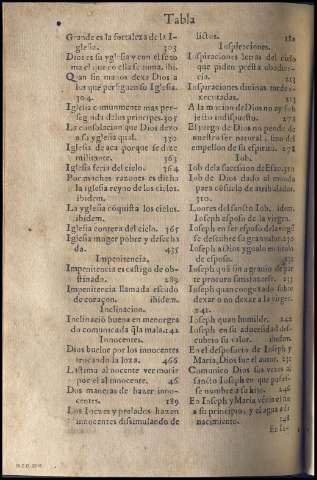 Tabla
Grande es la fortaleza de la I-
glesia. 303
Dios es su yglesia y con el feto
ma el que con ella se toma. ibi.
Quan sin manos dexa Dios a
los que persiguen su Iglesia.
304.
Iglesia comunmente mas per-
seguida de los principes. 305
La consolacion que Dios dexo
a su yglesia qual. 350
Iglesia de aca porque se dize
militante. 363
Iglesia feria del cielo. 364
Por muchas razones es dicha
la iglesia reyno de los cielos.
ibidem.
La yglesia cõquista los cielos.
ibidem.
Iglesia contera del cielo. 365
Iglesia muger pobre y desecha
da. 435
Impenitencia.
Impenitencia es castigo de ob-
stinado. 289
Impenitencia llamada escudo
de coraçon. ibidem.
Inclinacion.
Inclinació buena en menos gra
do comunicada q̃ la mala. 242
Innocentes.
Dios buelue por los innocentes
trocando la 466
Lastima al nocente ver morir
por el al innocente. 46
Dos maneras de hazer inno-
centes. 189
Los Iueces y prelados hazen
innocentes dissimulando de
lictos. 180
Inspiraciones.
Inspiraciones letras del cielo
que piden presta obedien-
cia. 213
Inspiraciones diuinas tarde
executadas. 213
A la mocion de Dios no ay sub
jecto indispuesto. 271
El pargo de Dios no pende de
nuestro ser natural, sino del
empellon de su espiritu. 278
Iob.
Iob de la sucession de Esau. 310
Iob de Dios dado al mundo
para cõsuelo de atribulados.
310.
Loores del sancto Iob. idem.
Ioseph esposo de la virgen.
Ioseph en ser esposo de la virgẽ
se descubre su gran valor. 236
Ioseph a Dios y goalo mitulo
de esposo. 237
Ioseph que sin agrauio de par
te procura satisfazerse. 233
Ioseph quan congoxado sobre
dexar o no dexar a la virgen.
241.
Ioseph quan humilde. 242
Ioseph en su aduersidad des-
cubrio su valor. ibidem.
En el desposorio de Ioseph y
Maria, Dios fue el autor. 235
Comunico Dios sus vezes a
sancto Ioseph en que pusies-
se nombre a su hijo. 246
En Ioseph y Maria vieron fin
a su principio, y el agua a su
nacimiento. 248
En Io-